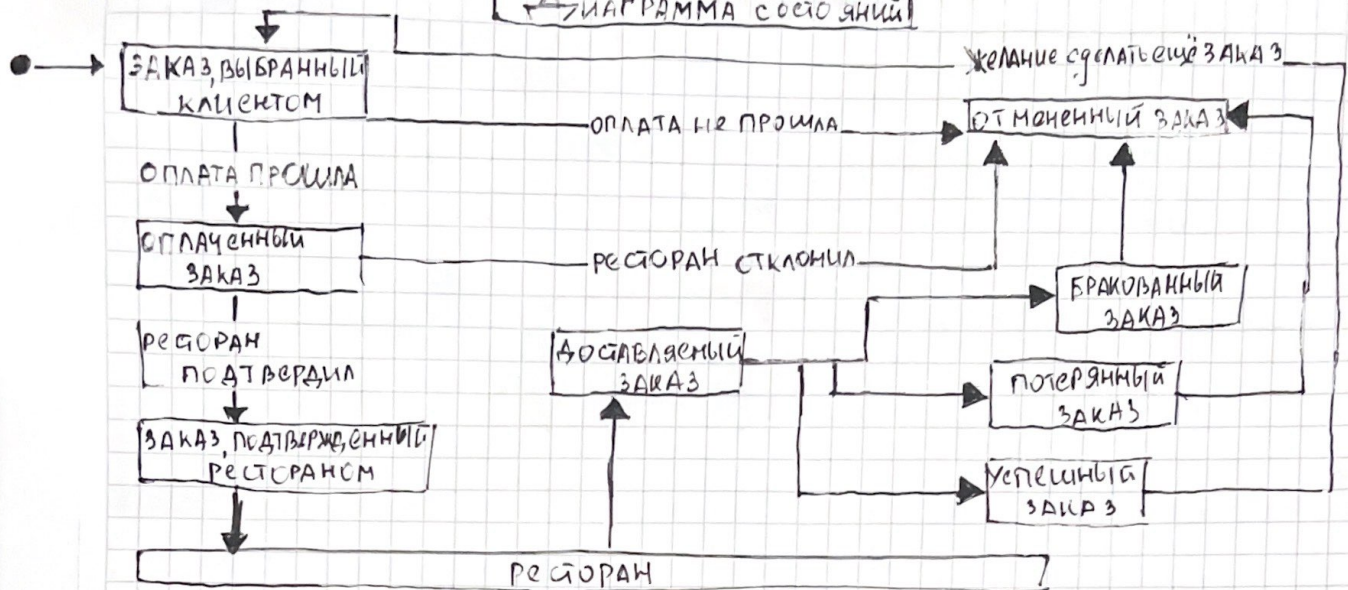 ДИАГРАММА СОСТОЯНИЙ
ЖЕЛАНИЕ СДЕЛАТЬ ЕЩЁ ЗАКАЗ
ЗАКАЗ, ВЫБРАННЫЙ
КЛИЕНТОМ
ОПЛАТА НЕ ПРОШЛА
ОТМЕНЕННЫЙ ЗАКАЗ
ОПЛАТА ПРОШЛА
ОПЛАЧЕННЫЙ
ЗАКАЗ
РЕСТОРАН ОТКЛОНИЛ
БРАКОВАННЫЙ
ЗАКАЗ
РЕСТОРАН
ПОДТВЕРДИЛ
ДОСТАВЛЯЕМЫЙ
ЗАКАЗ
ПОТЕРЯННЫЙ
ЗАКАЗ
ЗАКАЗ, ПОДТВЕРЖДЕННЫЙ
РЕСТОРАНОМ
УСПЕШНЫЙ
ЗАКАЗ
РЕСТОРАН